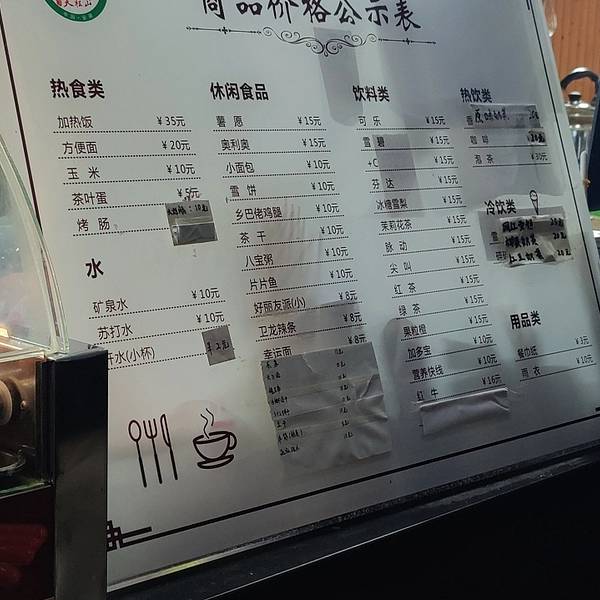 天柱山
商品价格公示表
热食类
加热饭 ￥35元
方便面 ￥20元
玉米 ￥10元
茶叶蛋 ￥5元
烤肠
水
矿泉水 ￥10元
苏打水 ￥10元
水(小杯)
休闲食品
薯愿 ￥15元
奥利奥 ￥15元
小面包 ￥10元
雪饼 ￥10元
乡巴佬鸡腿 ￥10元
茶干 ￥10元
八宝粥 ￥10元
片片鱼 ￥10元
好丽友派(小) ￥8元
卫龙辣条 ￥8元
幸运面 ￥8元
饮料类
可乐 ￥15元
雪碧 ￥15元
+C ￥15元
芬达 ￥15元
冰糖雪梨 ￥15元
茉莉花茶 ￥15元
脉动 ￥15元
尖叫 ￥15元
红茶 ￥15元
绿茶 ￥15元
果粒橙 ￥15元
加多宝 ￥10元
营养快线 ￥10元
红牛 ￥16元
热饮类
咖啡
泡茶 ￥30元
冷饮类
用品类
餐巾纸 ￥3元
雨衣 ￥10元